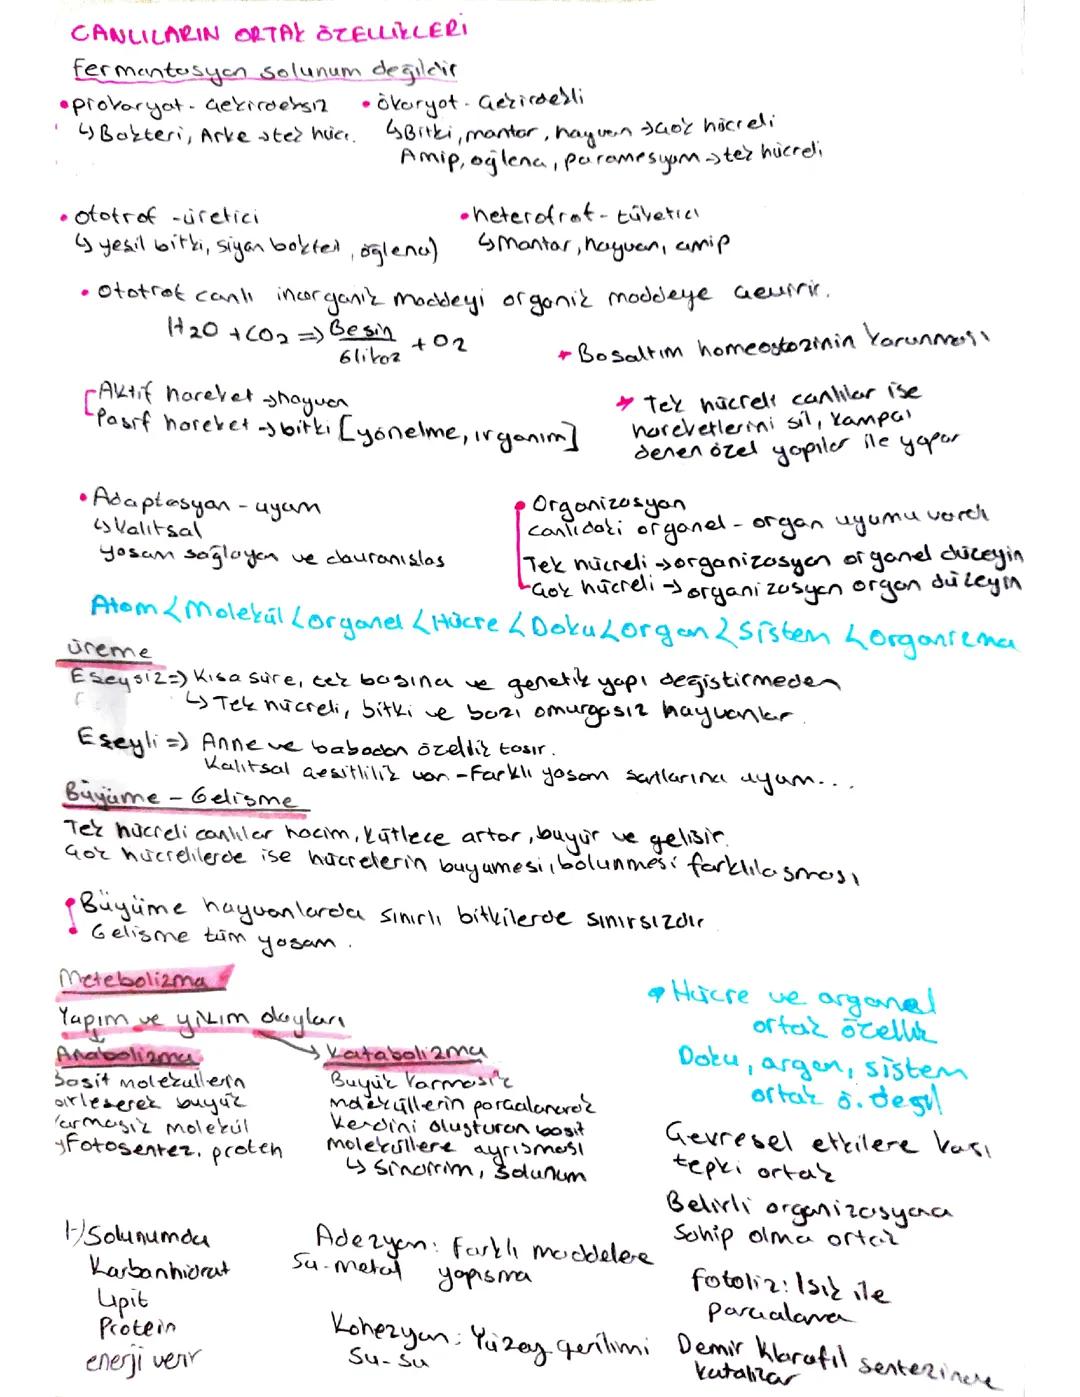 CANLILARIN ORTAK ÖZELLİKLERİ
fermantasyon solunum değildir
• prokaryot - çekirdeksiz
↳ Bakteri, Arke → tek hücr.
• ökaryot - çekirdekli
↳ Bitki, mantar, hayvan → çok hücreli
Amip, öğlena, paramesyum → tek hücreli
• ototrof - üretici
↳ yeşil bitki, siyan bakteri, öglena)
• heterotrof - tüketici
↳ mantar, hayvan, amip
• Ototrof canlı inorganik maddeyi organik maddeye çevirir.
H2O + CO2 => Besin + O2
Glikoz
* Bosaltım homeostazinin korunması
Aktif hareket → hayvan
Pasif hareket → bitki [yönelme, ırganım]
* Tek hücreli canlılar ise
hareketlerini sil, kampçı
denen özel yapılar ile yapar
• Adaptasyon - uyum
↳ kalıtsal
yaşam sağlayan ve davranışlas
• Organizasyon
canlıdaki organel - organ uyumu vardı
Tek hücreli → organizasyon organel düzeyin
Çok hücreli → organizasyon organ düzeyin
Atom < Molekül < organel < Hücre < Doku < organ < Sistem < organizma
üreme
Eşeysiz => Kısa süre, tek basına ve genetik yapı değiştirmeden
↳ Tek hücreli, bitki ve bazı omurgasız hayvanlar.
Eşeyli => Anne ve babadan özellik tasır.
Kalıtsal çesitlilik var - Farklı yaşam sartlarına uyum...
Büyüme - Gelisme
Tek hücreli canlılar hacim, kütlece artar, büyür ve gelisir.
Çok hücrelilerde ise hücrelerin büyümesi, bölünmesi farklılasması
• Büyüme hayvanlarda sınırlı bitkilerde sınırsızdır
• Gelisme tüm yosam.
Metebolizma
Yapım ve yıkım olayları
Anabolizma
Basit moleküllerin
birleserek büyük
karmasık molekül
↳ Fotosentez, protein
→ Katabolizma
Büyük karmasık
moleküllerin parçalanarak
kendini oluşturan basit
moleküllere ayrısması
↳ sindirim, solunum
• Hücre ve organel
ortak özellik
Doku, organ, sistem
ortak ö. degil
Çevresel etkilere karsı
tepki ortak
Belirli organizasyona
Sahip olma ortak
fotoliz: Isık ile
parçalama
Demir klorofil sentezinde
katalizar
1-) Solunumda
Karbanhidrat
Lipit
Protein
enerji verir
Adezyon: farklı maddelere
Su-metal yapısma
Kohezyon: Yüzey gerilimi
Su-su